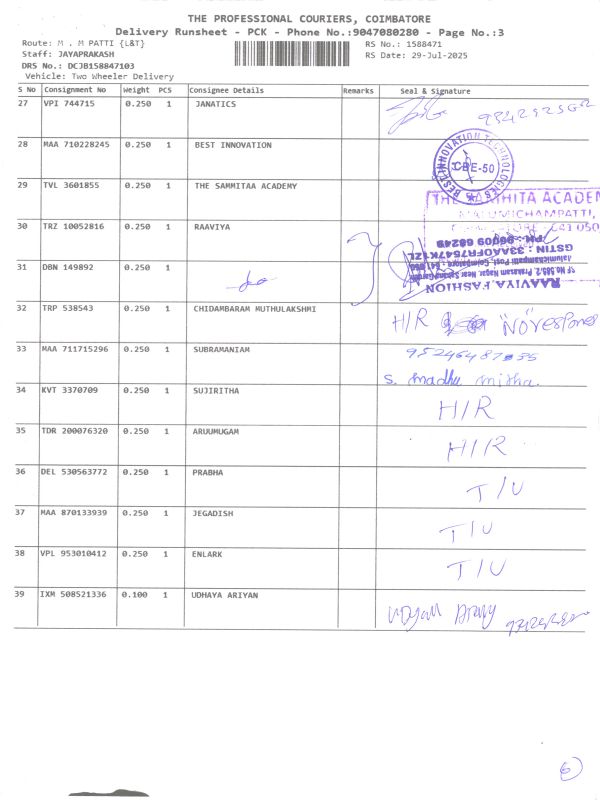 THE PROFESSIONAL COURIERS, COIMBATORE
Delivery Runsheet - PCK - Phone No.:9047080280 - Page No.:3
Route: M . M PATTI {L&T} RS No.: 1588471
Staff: JAYAPRAKASH RS Date: 29-Jul-2025
DRS No.: DCJB158847103
Vehicle: Two Wheeler Delivery
S No Consignment No Weight PCS Consignee Details Remarks Seal & Signature
27 VPI 744715 0.250 1 JANATICS
28 MAA 710228245 0.250 1 BEST INNOVATION
BEST INNOVATION TECHNOLOGIES
CBE-50
29 TVL 3601855 0.250 1 THE SAMMITAA ACADEMY
30 TRZ 10052816 0.250 1 RAAVIYA
RAAVIYA FASHION
GSTIN : 33AAOFR7547K1ZL
PH : 96009 68249
31 DBN 149892 0.250 1
32 TRP 538543 0.250 1 CHIDAMBARAM MUTHULAKSHMI H/R
33 MAA 711715296 0.250 1 SUBRAMANIAM
s. madhu mitha.
34 KVT 3370709 0.250 1 SUJIRITHA H/R
35 TDR 200076320 0.250 1 ARUUMUGAM H/R
36 DEL 530563772 0.250 1 PRABHA T/U
37 MAA 870133939 0.250 1 JEGADISH T/U
38 VPL 953010412 0.250 1 ENLARK T/U
39 IXM 508521336 0.100 1 UDHAYA ARIYAN
6